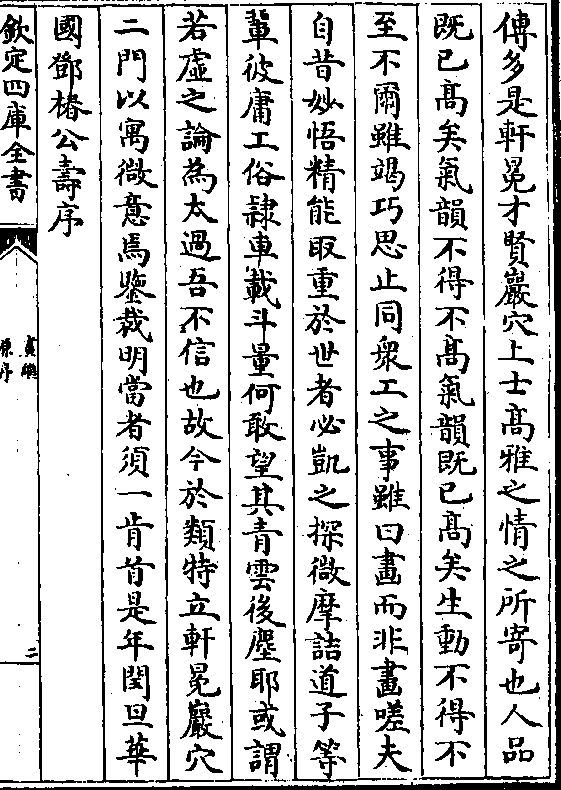 傳多是軒冕才賢巖穴上士髙雅之情之所寄也人品
既已髙矣氣韻不得不髙氣韻既已髙矣生動不得不
至不爾雖竭巧思止同衆工之事雖曰畫而非畫嗟夫
自昔妙悟精能取重於世者必凱之探微摩詰道子等
輩彼庸工俗隷車載斗量何敢望其青雲後塵耶或謂
若虚之論為太過吾不信也故今於類特立軒冕巖穴
二門以寓微意焉鑒裁明當者須一肯首是年閏旦華
國鄧椿公壽序
欽定四庫全書
畫繼
原序
二